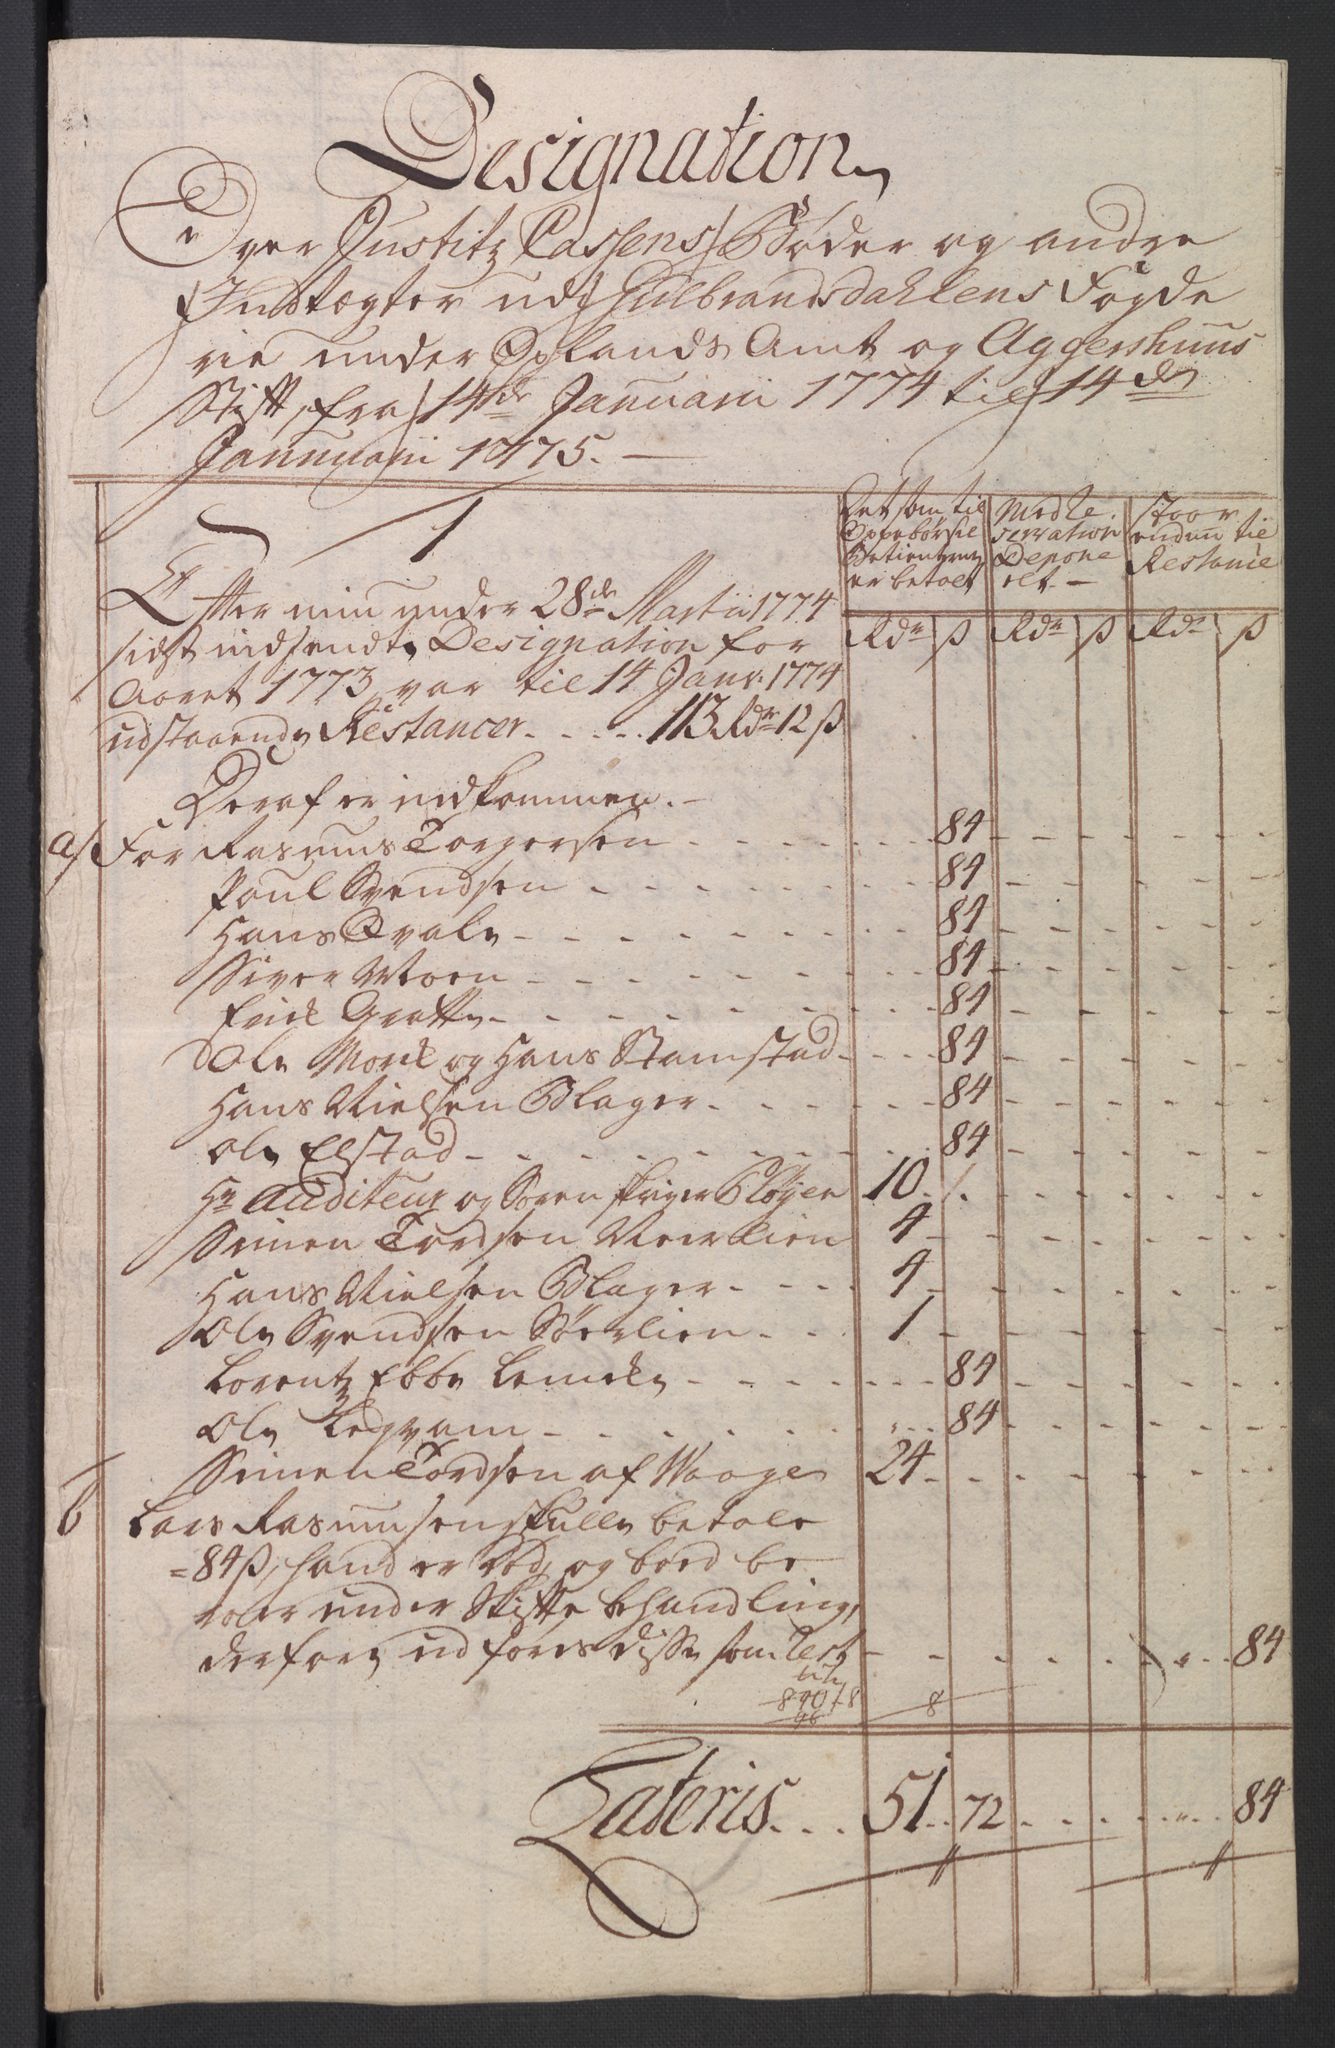 Designation
Over Justitz Cassens Bøder og andre
Indtægter udj Gulbrandsdahlens Fogde
rie under Oplands Amt og Aggershuus
Stift, fra 14de Januarii 1774 til 14de
Januarii 1775.
1
Det som til Oppebørsels Betienterne er betalt
Med Reservation Deponeret.
Staar endnu til Restance
Rdr ß Rdr ß Rdr ß
Efter min under 28de Martii 1774
sidst indsendte Designation for
Aaret 1773 var til 14 Janr: 1774
udstaaende Restancer. . . . . 113 Rdr 12 ß
Deraf er indkommen.
a/ For Rasmus Torgersen 84
Poul Svendsen 84
Hans Qvale 84
Siver Moen 84
Erick Gratte 84
Ole Morck og Hans Stamstad 84
Hans Nielsen Blager 84
Ole Elstad 84
Hr Auditeur og Sorenskriver Pløyen 10
Simen Tordsen 4
Hans Nielsen Blager 4
Ole Svendsen Sørlien 1
Lorentz Ebbe Lemcke 84
Ole Legvam 84
Simen Tordsen af Vaage 24
b Lars Rasmusen skulle betale
84 ß, hand er død, og boed be
roer under Skifte behandling,
derfore udføres disse som Rest 84
840 / 8
96
8
Lateris . . . 51 72 84